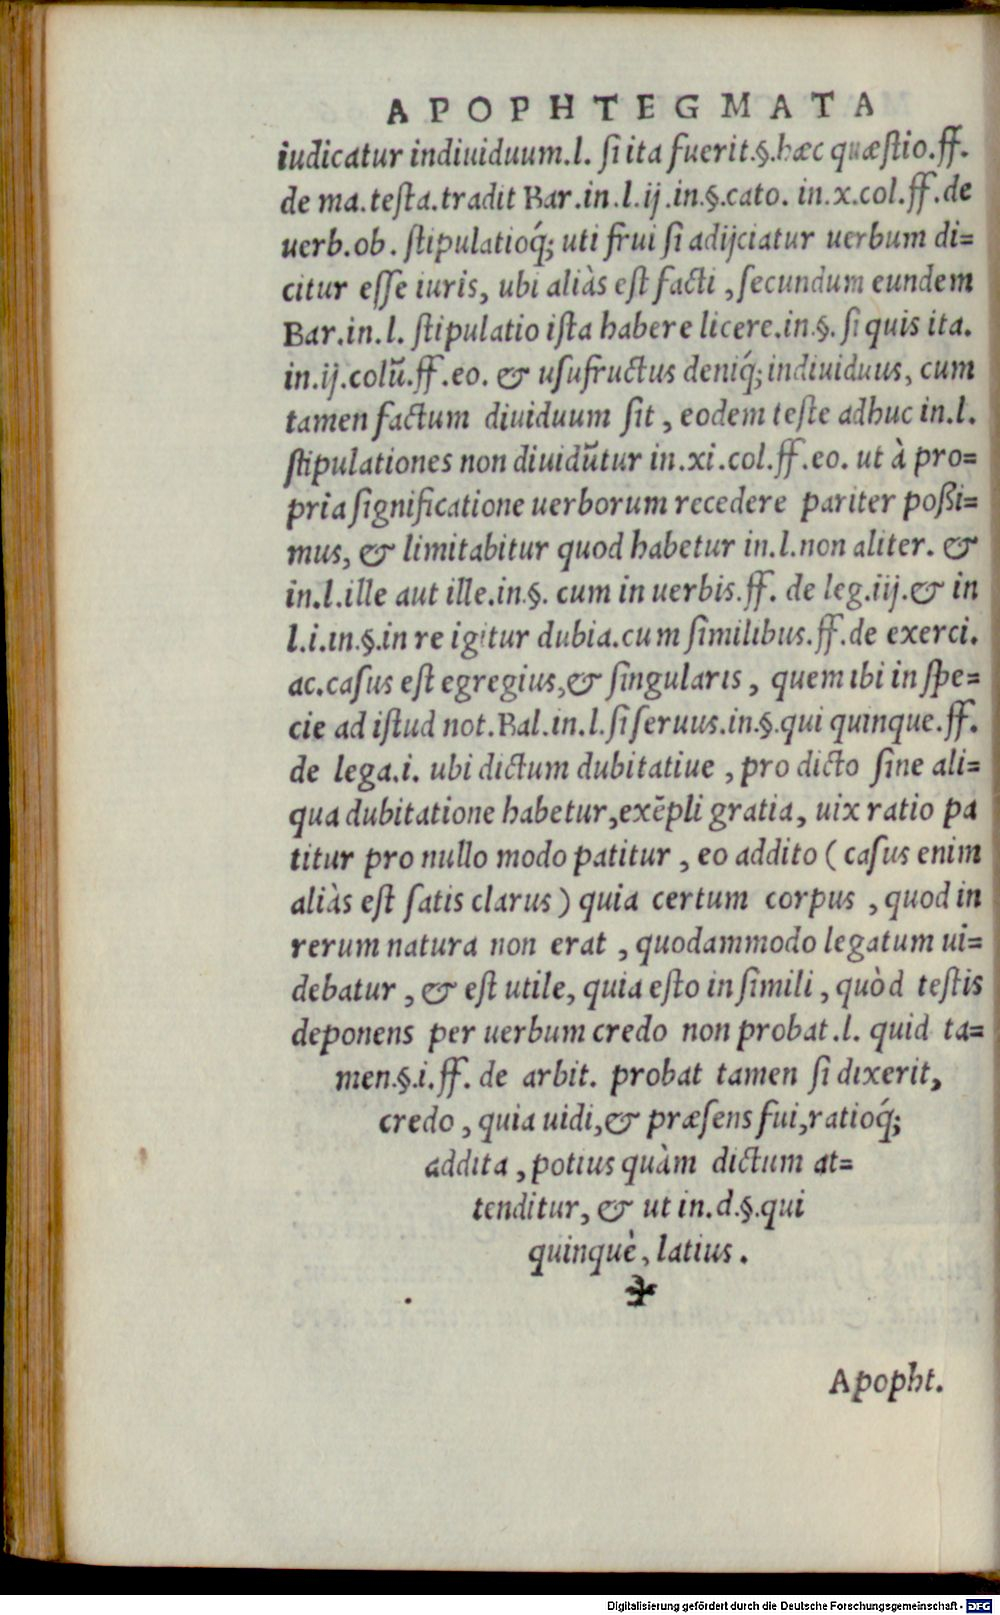 APOPHTEGMATA
iudicatur indiuiduum.l. si ita fuerit.§.hæc quæstio.ff.
de ma.testa.tradit Bar.in.l.ij.in.§.cato. in.x.col.ff.de
uerb.ob. stipulatioq́; uti frui si adijciatur uerbum di=
citur esse iuris, ubi aliàs est facti, secundum eundem
Bar.in.l. stipulatio ista habere licere.in.§. si quis ita.
in.ij.colũ.ff.eo. & usufructus deniq́; indiuiduus, cum
tamen factum diuiduum sit, eodem teste adhuc in.l.
stipulationes non diuidũtur in.xi.col.ff.eo. ut à pro=
pria significatione uerborum recedere pariter poßi=
mus, & limitabitur quod habetur in.l.non aliter. &
in.l.ille aut ille.in.§. cum in uerbis.ff. de leg.iij.& in
l.i.in.§.in re igitur dubia.cum similibus.ff.de exerci.
ac.casus est egregius,& singularis, quem ibi in spe=
cie ad istud not.Bal.in.l.si seruus.in.§.qui quinque.ff.
de lega.i. ubi dictum dubitatiue, pro dicto sine ali=
qua dubitatione habetur,exẽpli gratia, uix ratio pa
titur pro nullo modo patitur, eo addito (casus enim
aliàs est satis clarus) quia certum corpus, quod in
rerum natura non erat, quodammodo legatum ui=
debatur, & est utile, quia esto in simili, quòd testis
deponens per uerbum credo non probat.l. quid ta=
men.§.i.ff. de arbit. probat tamen si dixerit,
credo, quia uidi,& præsens fui,ratioq́;
addita, potius quàm dictum at=
tenditur, & ut in.d.§.qui
quinquè, latius.
Apopht.
Digitalisierung gefördert durch die Deutsche Forschungsgemeinschaft - DFG